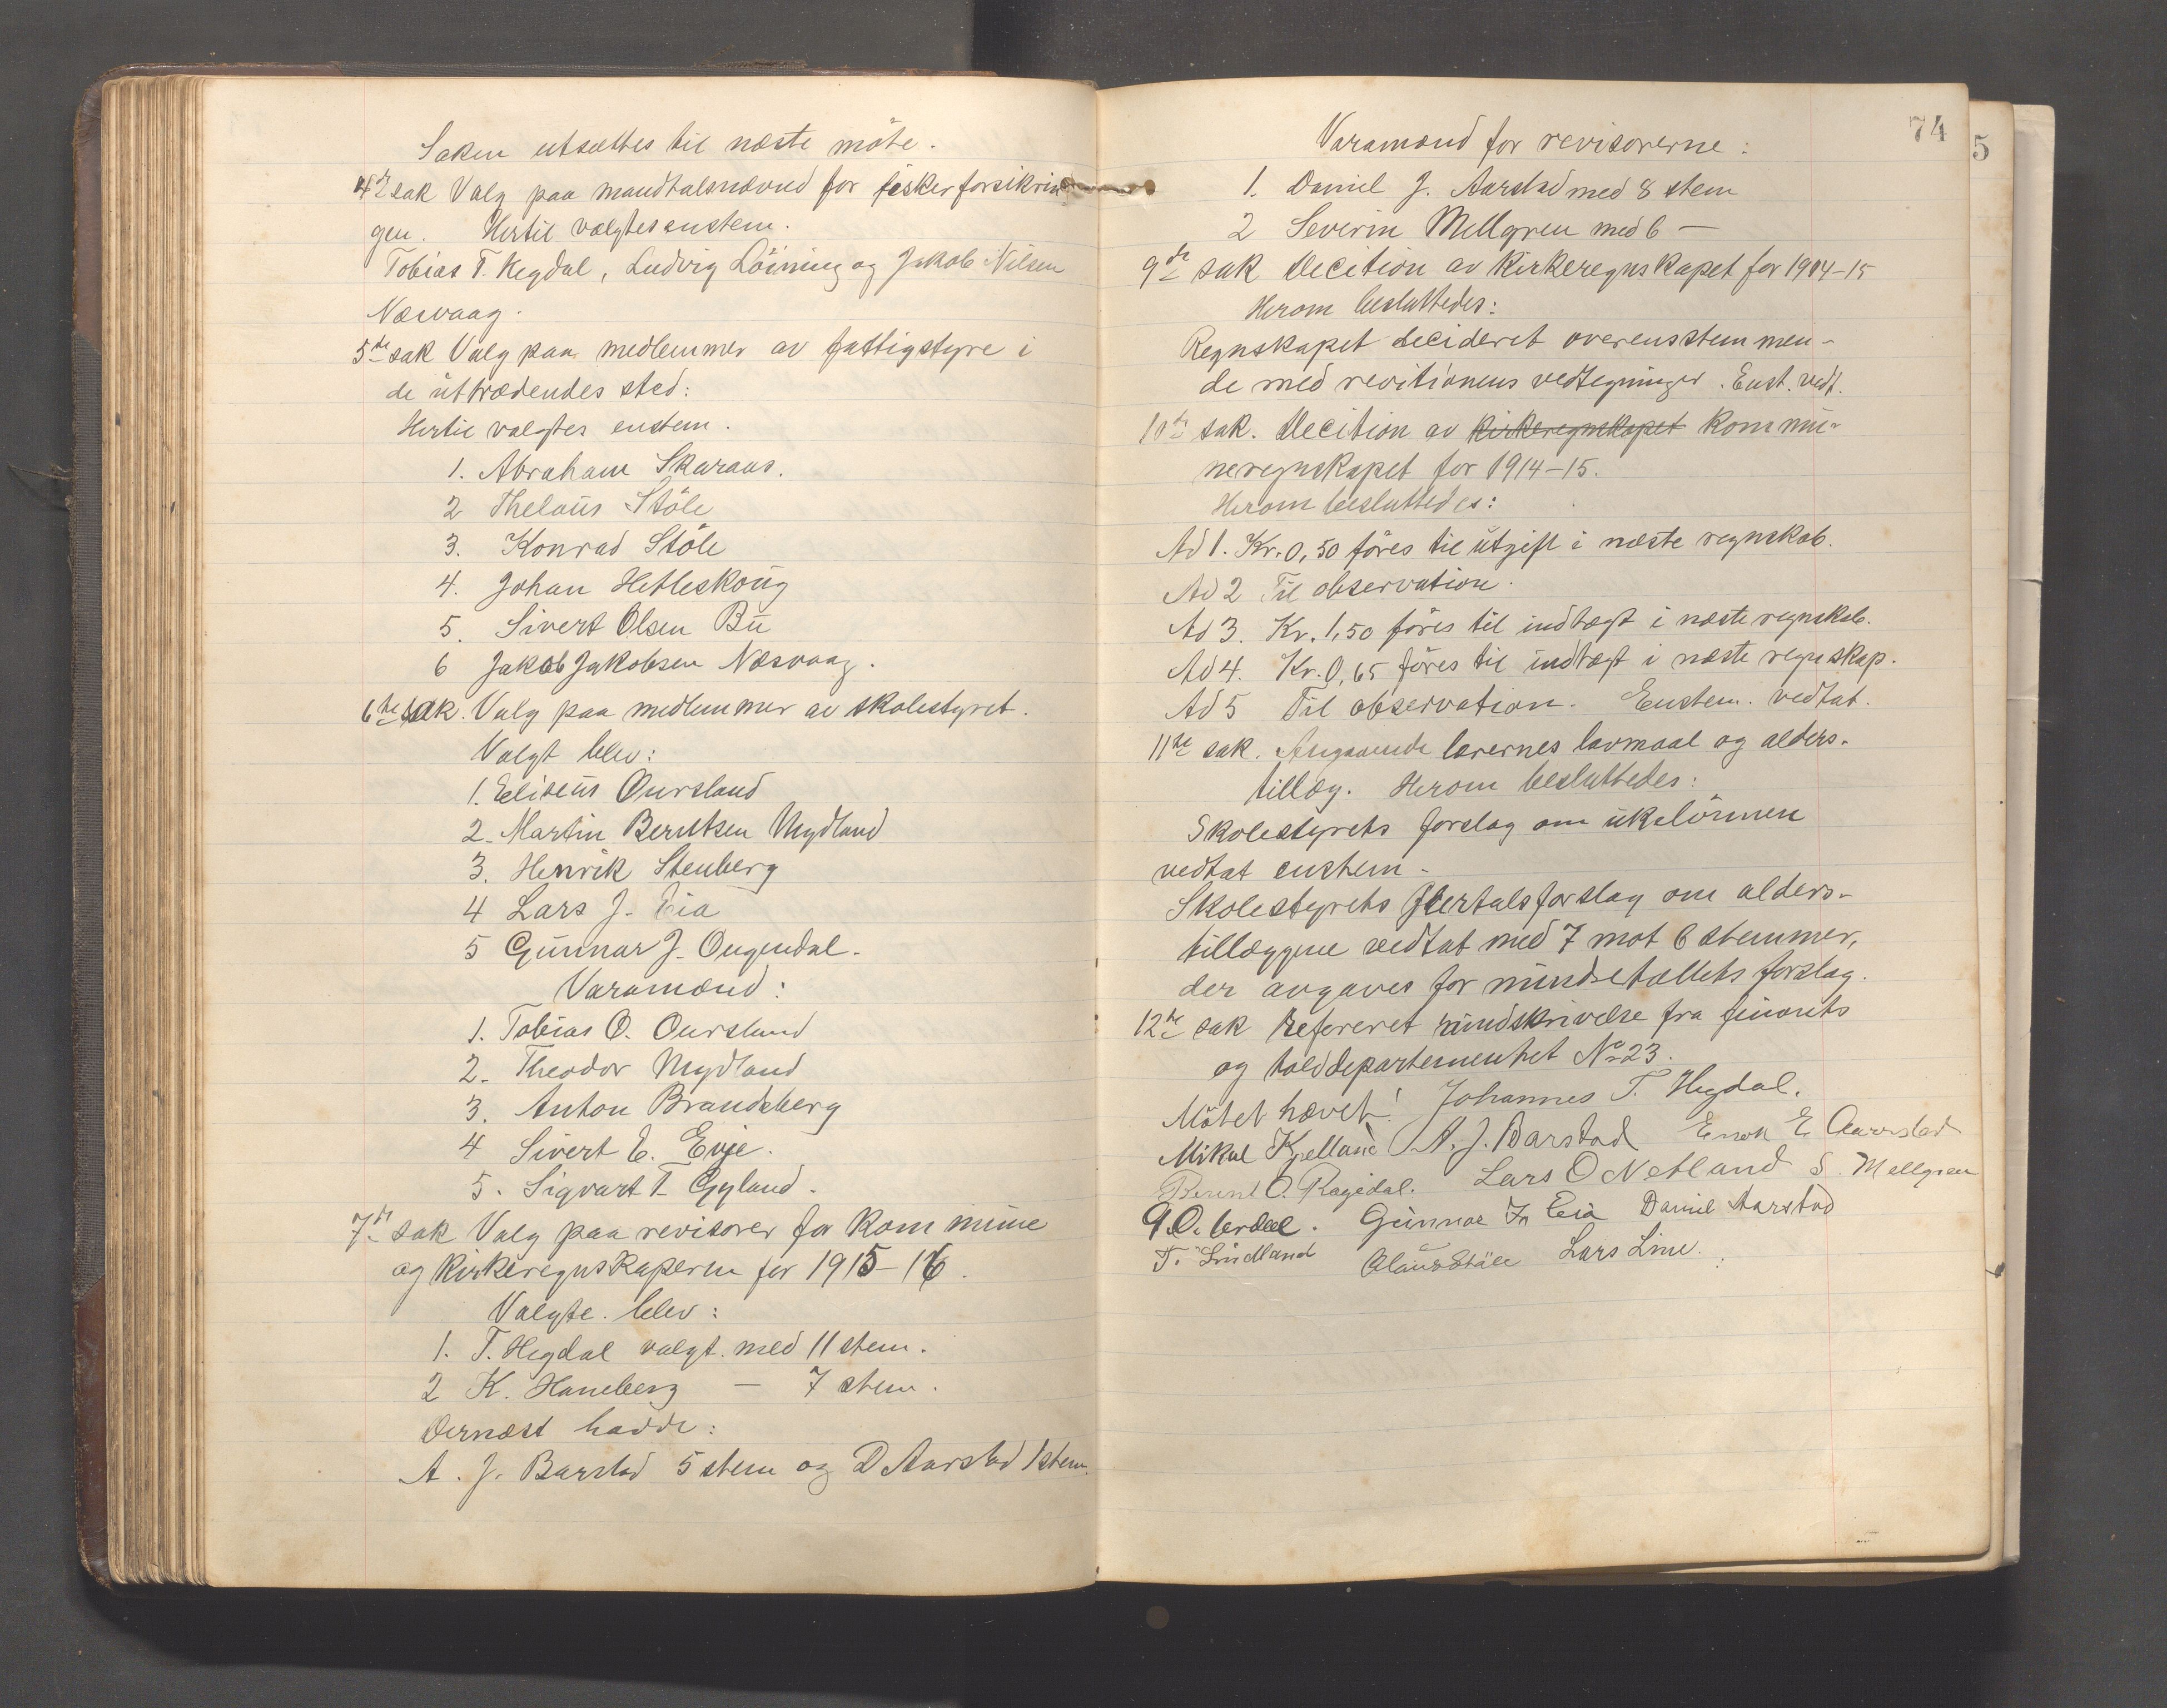 Saken utsættes til næste möte.
4de sak Valg paa mandtalsnævnd for fiskerforsikrin
gen. Hertil valgtes enstem.
Tobias T. Hegdal, Ludvig Löining og Jakob Nilsen
Næsvaag.
5te sak Valg paa medlemmer av fattigstyre i
de uttrædendes sted:
Hertil valgtes enstem.
1. Abraham Skaraas.
2 Thelaus Stöle
3. Konrad Stöle
4. Johan Hetleskoug
5. Sivert Olsen Bu
6 Jakob Jakobsen Næsvaag.
6te sak. Valg paa medlemmer av skolestyret.
Valgt blev:
1. Eliseus Oursland
2. Martin Berntsen Mydland
3. Henrik Stenberg
4 Lars J. Eia
5 Gunnar J. Ougendal.
Varamænd:
1. Tobias O. Oursland
2. Theodor Mydland
3. Anton Brandsberg
4 Sivert E. Evje.
5. Sigvart T. Gyland.
7de sak Valg paa revisorer for kommune
og kirkeregnskaperne for 1915–16.
Valgte blev:
1. T. Hegdal valgt med 11 stem.
2 K. Haneberg — 7 stem.
Dernæst hadde:
A. J. Barstad 5 stem og D Aarstad 1 stem.
74
5
Varamænd for revisorerne:
1. Daniel J. Aarstad med 8 stem
2 Severin Mellgren med 6 —
9de sak Decition av kirkeregnskapet for 1914–15
Herom besluttedes:
Regnskapet decideret overensstemmen-
de med revitionens vedtegninger. Enst. vedt.
10de sak. Decition av kirkeregnskapet kommu-
neregnskapet for 1914–15.
Herom besluttedes:
Ad 1. Kr. 0,50 föres til utgift i næste regnskab.
Ad 2 Til observation.
Ad 3. Kr. 1,50 föres til indtægt i næste regnskab.
Ad 4. Kr. 0,65 föres til indtægt i næste regnskap.
Ad 5 Til observation. Enstem. vedtat.
11te sak. Angaaende lærernes lavmaal og alders-
tillæg. Herom besluttedes:
Skolestyrets forslag om ukelönnen
vedtat enstem.
Skolestyrets flertalsforslag om alders-
tillæggene vedtat med 7 mot 6 stemmer,
der avgaves for mindretallets forslag.
12te sak Referert rundskrivelse fra finants
og tolddepartementet No 23.
Mötet hævet! Johannes T. Hegdal.
Mikal Kjelland A. J. Barstad Enok E. Aarrstad
Bernt O. Ragedal. Lars O Netland S. Mellgren
Gunnar Js Eia Daniel Aarstad
T. Lindland Olaus Stöle Lars Lim.